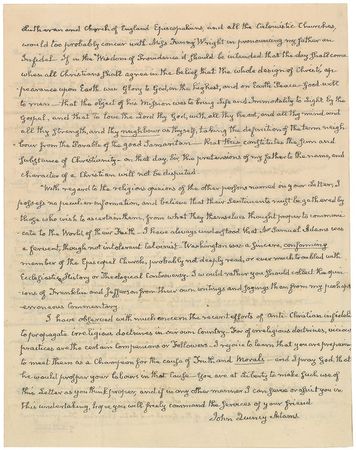 Lutheran and Church of England Episcopalians, and all the Calvinistic Churches,
would too probably concur with Miss Fanny Wright in pronouncing my father an
Infidel. If in the Wisdom of Providence it should be intended that the day shall come
when all Christians shall agree in the belief that the whole design of Christ's ap-
pearance upon Earth was Glory to God in the highest, and on Earth Peace—Good will
to men—that the object of his Mission was to bring Life and Immortality to Light by the
Gospel, and that To love the Lord thy God, with all thy heart, and all thy mind and
all thy Strength, and thy neighbour as thyself, taking the definition of the term neigh-
bour from the Parable of the good Samaritan—that this constitutes the sum and
Substance of Christianity—on that day, Sir, the pretensions of my father to the name, and
character of a Christian will not be disputed.
With regard to the religious opinions of the other persons named in your Letter, I
possess no peculiar information, and believe that their Sentiments must be gathered by
those who wish to ascertain them, from what they themselves thought proper to communi-
cate to the World of their Faith. I have always understood that Mr Samuel Adams was
a fervent, though not intolerant Calvinist. Washington was a sincere, conforming
member of the Episcopal Church, probably not deeply read, or ever much troubled with
Ecclesiastic History or Theological Controversy. I would rather you should collect the opin-
ions of Franklin and Jefferson from their own writings and sayings than from my perhaps
erroneous Commentary.
I have observed with much concern the recent efforts of Anti Christian infidels
to propagate irreligious doctrines in our own Country. For of irreligious doctrines, vicious
practices are the certain companions or followers. I rejoice to learn that you are prepared
to meet them as a Champion for the cause of Truth and Morals—and I pray God that
he would prosper your labours in that Cause—You are at Liberty to make such use of
this Letter as you think proper, and if in any other manner I can serve or assist you in
this undertaking, hope you will freely command the services of your friend
John Quincy Adams.